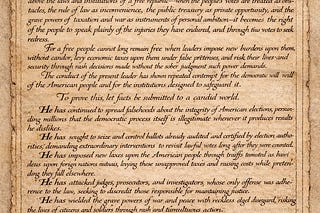 above the laws and institutions of a free republic—when the people's votes are treated as obs-
tacles, the rule of law as inconvenience, the public treasury as private opportunity, and the
grave powers of taxation and war as instruments of personal ambition—it becomes the right
of the people to speak plainly of the injuries they have endured, and through their votes to seek
redress.
For a free people cannot long remain free when leaders impose new burdens upon them,
without candor, levy economic taxes upon them under false pretenses, and risk their lives and
security through rash decisions made without the sober judgment such power demands.
The conduct of the present leader has shown repeated contempt for the democratic will
of the American people and for the institutions designed to safeguard it.
To prove this, let facts be submitted to a candid world.
He has continued to spread falsehoods about the integrity of American elections, persua-
ding millions that the democratic process itself is illegitimate whenever it produces results
he dislikes.
He has sought to seize and control ballots already audited and certified by election autho-
rities, demanding extraordinary interventions to revisit lawful votes long after they were counted.
He has imposed new taxes upon the American people through tariffs touted as bur-
dens upon foreign nations, levying these unapproved taxes and raising costs while preten-
ding they fall elsewhere.
He has attacked judges, prosecutors, and investigators, whose only offense was adhe-
rence to the law, seeking to discredit those responsible for maintaining justice.
He has wielded the grave powers of war and peace with reckless disregard, risking
the lives of citizens and soldiers through rash and tumultuous actions.